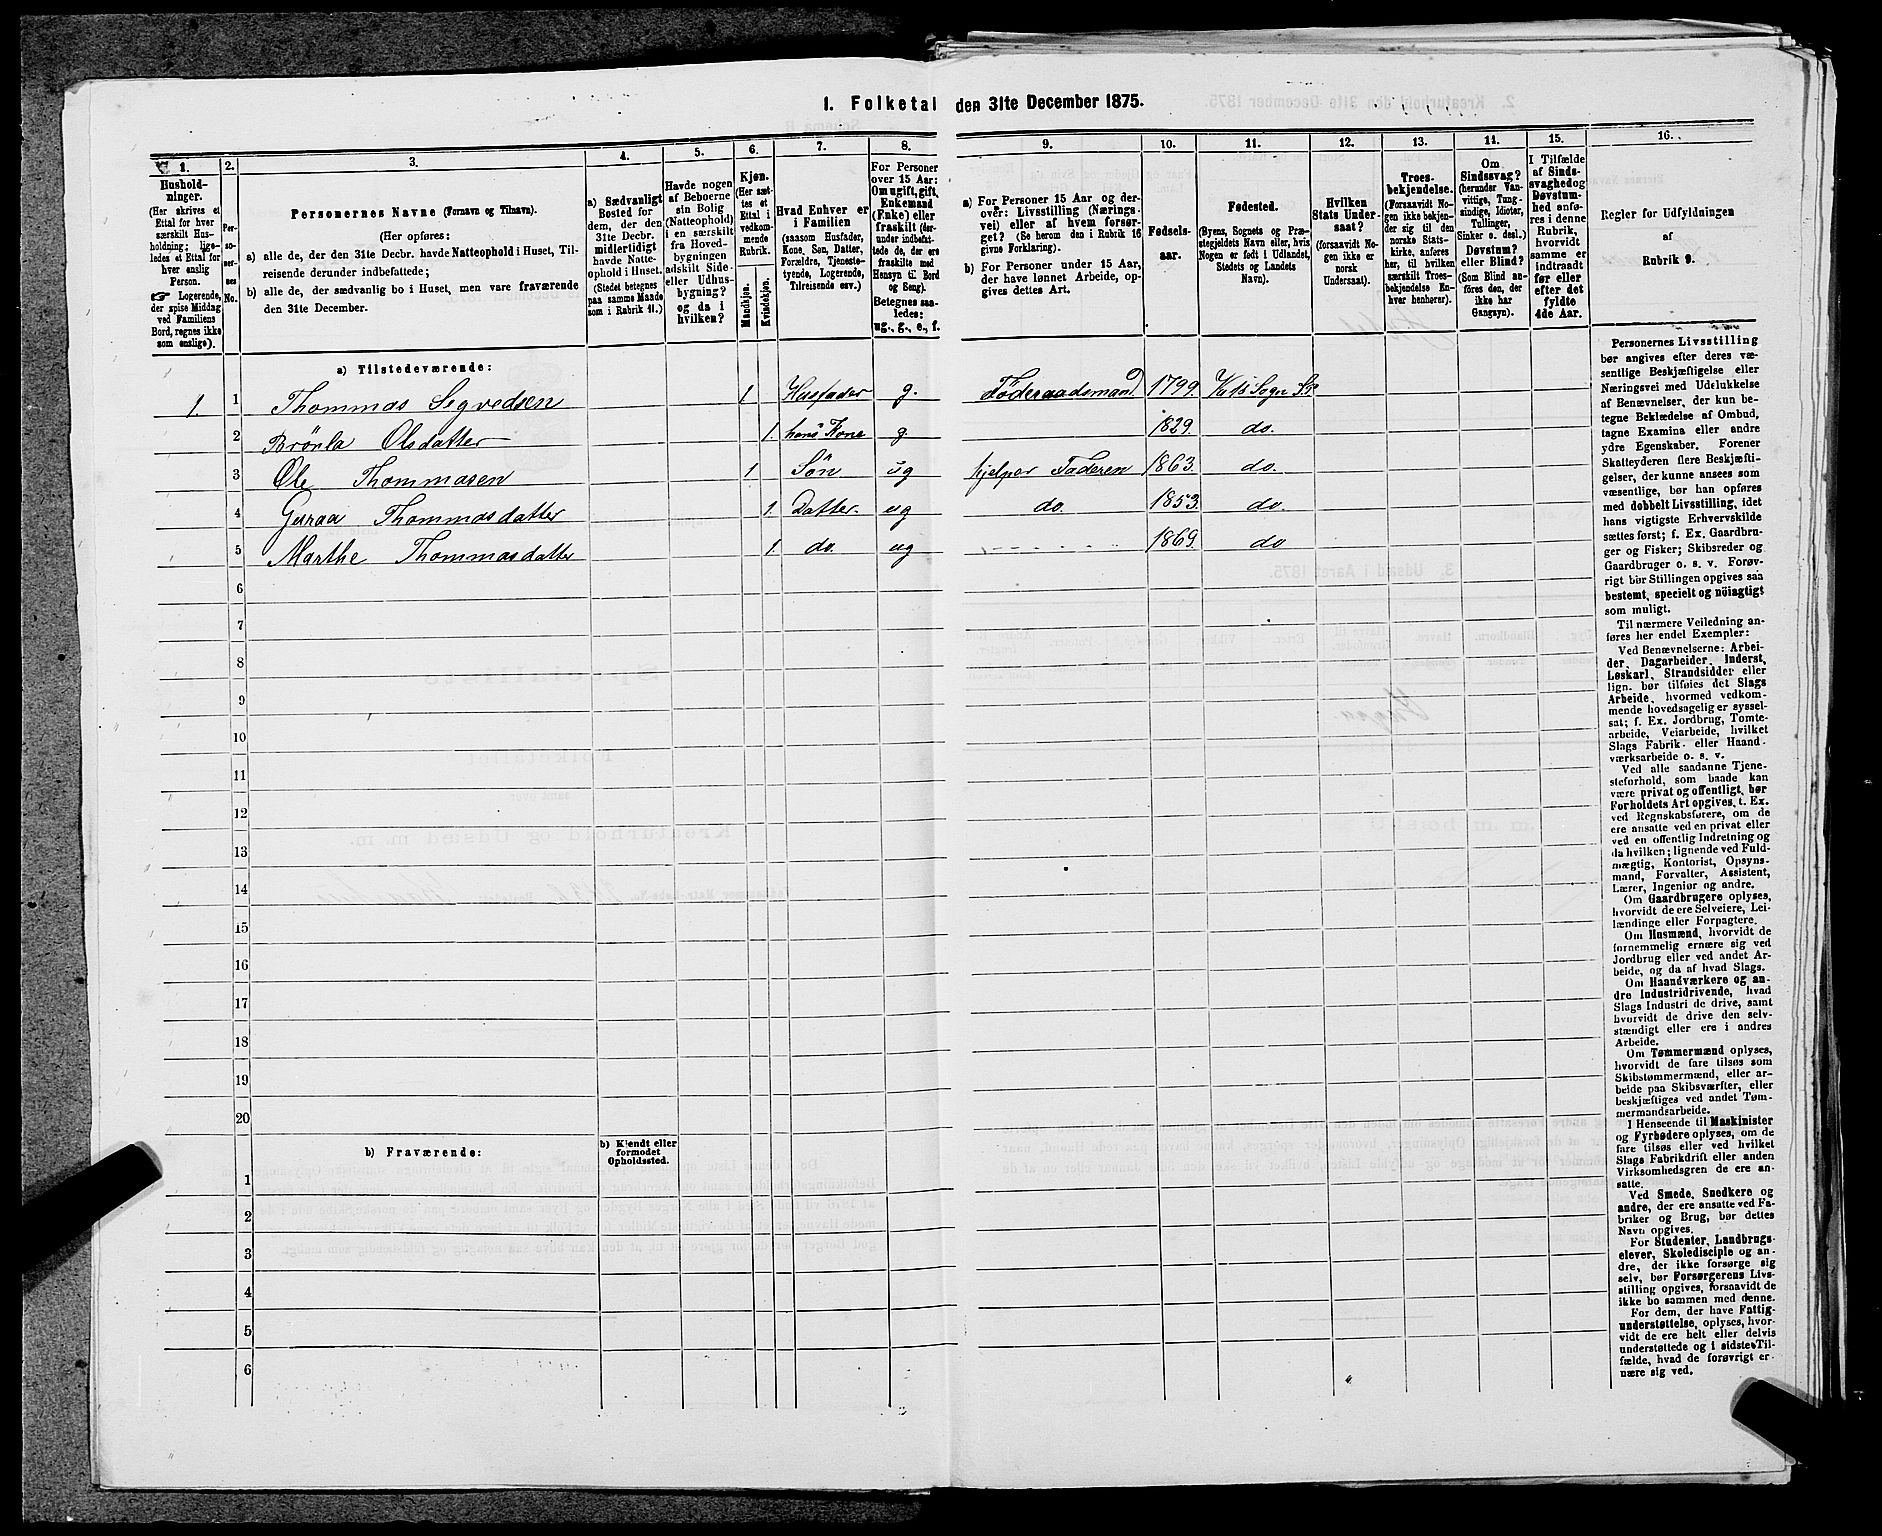 1. Folketal den 31te December 1875.
1.
Hushold-
ninger.
(Her skrives et
Ettal for hver
særskilt Hus-
holdning; lige-
ledes et Ettal for
hver enslig
Person.
☞ Logerende,
der spise Middag
ved Familiens
Bord, regnes ikke
som enslige).
2.
Per-
so-
ner-
nes
No.
3.
Personernes Navne (Fornavn og Tilnavn).
(Her opføres:
a) alle de, der den 31te Decbr. havde Natteophold i Huset, Til-
reisende derunder indbefattede;
b) alle de, der sædvanlig bo i Huset, men vare fraværende
den 31te December.
4.
a) Sædvanligt
Bosted for
dem, der den
31te Decbr.
midlertidigt
havde Natte-
ophold i Huset.
(Stedet betegnes
paa samme Maade
som i Rubrik 11.)
5.
Havde nogen
af Beboerne
sin Bolig
(Natteophold)
i en særskilt
fra Hoved-
bygningen
adskilt Side-
eller Udhus-
bygning?
og da i
hvilken?
6.
Kjøn.
(Her sæt-
tes et
Ettal i
vedkom-
mende
Rubrik.
Mandkjøn.
Kvindekjøn.
7.
Hvad Enhver er
i Familien
(saasom Husfader,
Kone, Søn, Datter,
Forældre, Tjeneste-
tyende, Logerende,
Tilreisende osv.)
8.
For Personer
over 15 Aar:
Om ugift, gift,
Enkemand
(Enke) eller
fraskilt (der-
under indbefat-
tede de, der ere
fraskilte med
Hensyn til Bord
og Seng).
Betegnes saa-
ledes:
ug., g., e., f.
9.
a) For Personer 15 Aar og der-
over: Livsstilling (Nærings-
vei) eller af hvem forsør-
get? (Se herom den i Rubrik 16
givne Forklaring).
b) For Personer under 15 Aar,
der have lønnet Arbeide, op-
gives dettes Art.
10.
Fødsels-
aar.
11.
Fødested.
(Byens, Sognets og Præ-
stegjeldets Navn eller, hvis
Nogen er født i Udlandet,
Stedets og Landets
Navn).
12.
Hvilken
Stats Under-
saat?
(forsaavidt No-
gen ikke er
norsk
Undersaat).
13.
Troes-
bekjendelse.
(Forsaavidt No-
gen ikke bekjen-
der sig til den
norske Stats-
kirke, anføres
her, til hvilken
særskilt Troes-
bekjendelse En-
hver henhører).
14.
Om
Sindssvag?
(herunder Van-
vittige, Tung-
sindige, Idioter,
Tullinger,
Sinker o. desl.)
Døvstum?
eller Blind?
(Som Blind an-
føres den, der
ikke har
Gangsyn).
15.
I Tilfælde
af Sinds-
svaghed og
Døvstum-
hed anfø-
res i denne
Rubrik,
hvorvidt
samme er
indtraadt
før eller
efter det
fyldte
4de Aar.
16.
Regler for Udfyldningen
af
Rubrik 9.
a) Tilstedeværende:
1. 1 Thommas Segvedsen 1. Husfader g. Föderaadsmand 1799. Sogn
2 Olsdatter 1. hans Kone g. 1829. do.
3 Ole Thommasen 1 Sön ug hjelper Faderen 1863. do.
4 Thommasdatter 1. Datter. ug do. 1853. do.
5 Marthe Thommasdatter 1. do. ug 1869. do
6
7
8
9
10
11
12
13
14
15
16
17
18
19
20
b) Fraværende:
b) Kjendt eller
formodet
Opholdssted.
1
2
3
4
5
6
Personernes Livsstilling
bør angives efter deres væ-
sentlige Beskjæftigelse eller
Næringsvei med Udelukkelse
af Benævnelser, der kun be-
tegne Beklædelse af Ombud,
tagne Examina eller andre
ydre Egenskaber. Forener
Skatteyderen flere Beskjæfti-
gelser, der kunne ansees som
væsentlige, bør han opføres
med dobbelt Livsstilling, idet
hans vigtigste Erhvervskilde
sættes først; f. Ex. Gaardbru-
ger og Fisker; Skibsreder og
Gaardbruger o. s. v. Forøv-
rigt bør Stillingen opgives saa
bestemt, specielt og nöiagtigt
som muligt.
Til nærmere Veiledning an-
føres her endel Exempler:
Ved Benævnelserne: Arbei-
der, Dagarbeider, Inderst,
Løskarl, Strandsidder eller
lign. bør tilføies det Slags
Arbeide, hvormed vedkom-
mende hovedsagelig er syssel-
sat; f. Ex. Jordbrug, Tomte-
arbeide, Veiarbeide, hvilket
Slags Fabrik- eller Haand-
værksarbeide o. s. v.
Ved alle saadanne Tjene-
steforhold, som baade kan
være privat og offentligt, bør
Forholdets Art opgives, t. Ex.
ved Regnskabsførere, om de
ere ansatte ved en privat eller
ved en offentlig Indretning og
da hvilken; lignende ved Fuld-
mægtig, Kontorist, Opsyns-
mand, Forvalter, Assistent,
Lærer, Ingeniør og andre.
Om Gaardbrugere oplyses,
hvorvidt de ere Selveiere, Lei-
lændinge eller Forpagtere.
Om Husmænd, hvorvidt de
fornemmelig ernære sig ved
Jordbrug eller ved andet Ar-
beide, og da af hvad Slags.
Om Haandværkere og an-
dre Industridrivende, hvad
Slags Industri de drive, samt
hvorvidt de drive den selv-
stændigt eller ere i andres
Arbeide.
Om Tømmermænd oplyses,
hvorvidt de fare tilsøs som
Skibstømmermænd, eller ar-
beide paa Skibsværfter, eller
beskjæftiges ved andet Tøm-
mermandsarbeide.
I Henseende til Maskinister
og Fyrbødere oplyses, om de
fare tilsøs eller ved hvilket
Slags Fabrikdrift eller anden
Virksomhedsgren de ere an-
satte.
Ved Smede, Snedkere og
andre, der ere ansatte ved Fa-
briker og Brug, bør dettes
Navn opgives.
For Studenter, Landbrugs-
elever, Skoledisciple og an-
dre, der ikke forsørge sig
selv, bør Forsørgerens Livs-
stilling opgives, forsaavidt de
ikke bo sammen med denne.
For dem, der have Fattig-
understøttelse, oplyses, hvor-
vidt de ere helt eller delvis
understøttede og i sidste Til-
fælde, hvad de forøvrigt er-
nære sig ved.